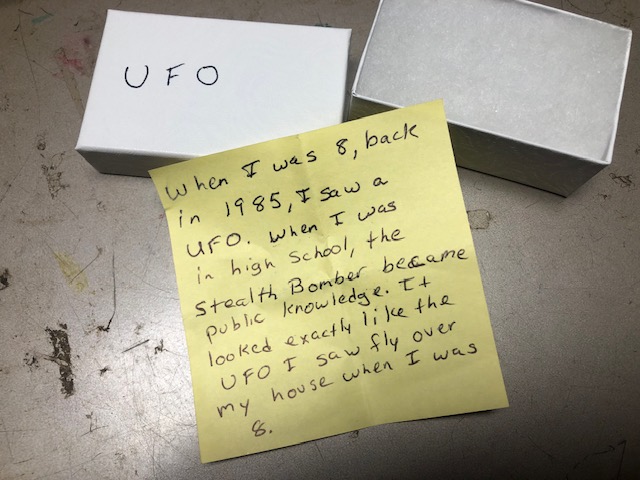 UFO
When I was 8, back
in 1985, I saw a
UFO. When I was
in high School, the
Stealth Bomber became
public knowledge. It
looked exactly like the
UFO I saw fly over
my house when I was
8.